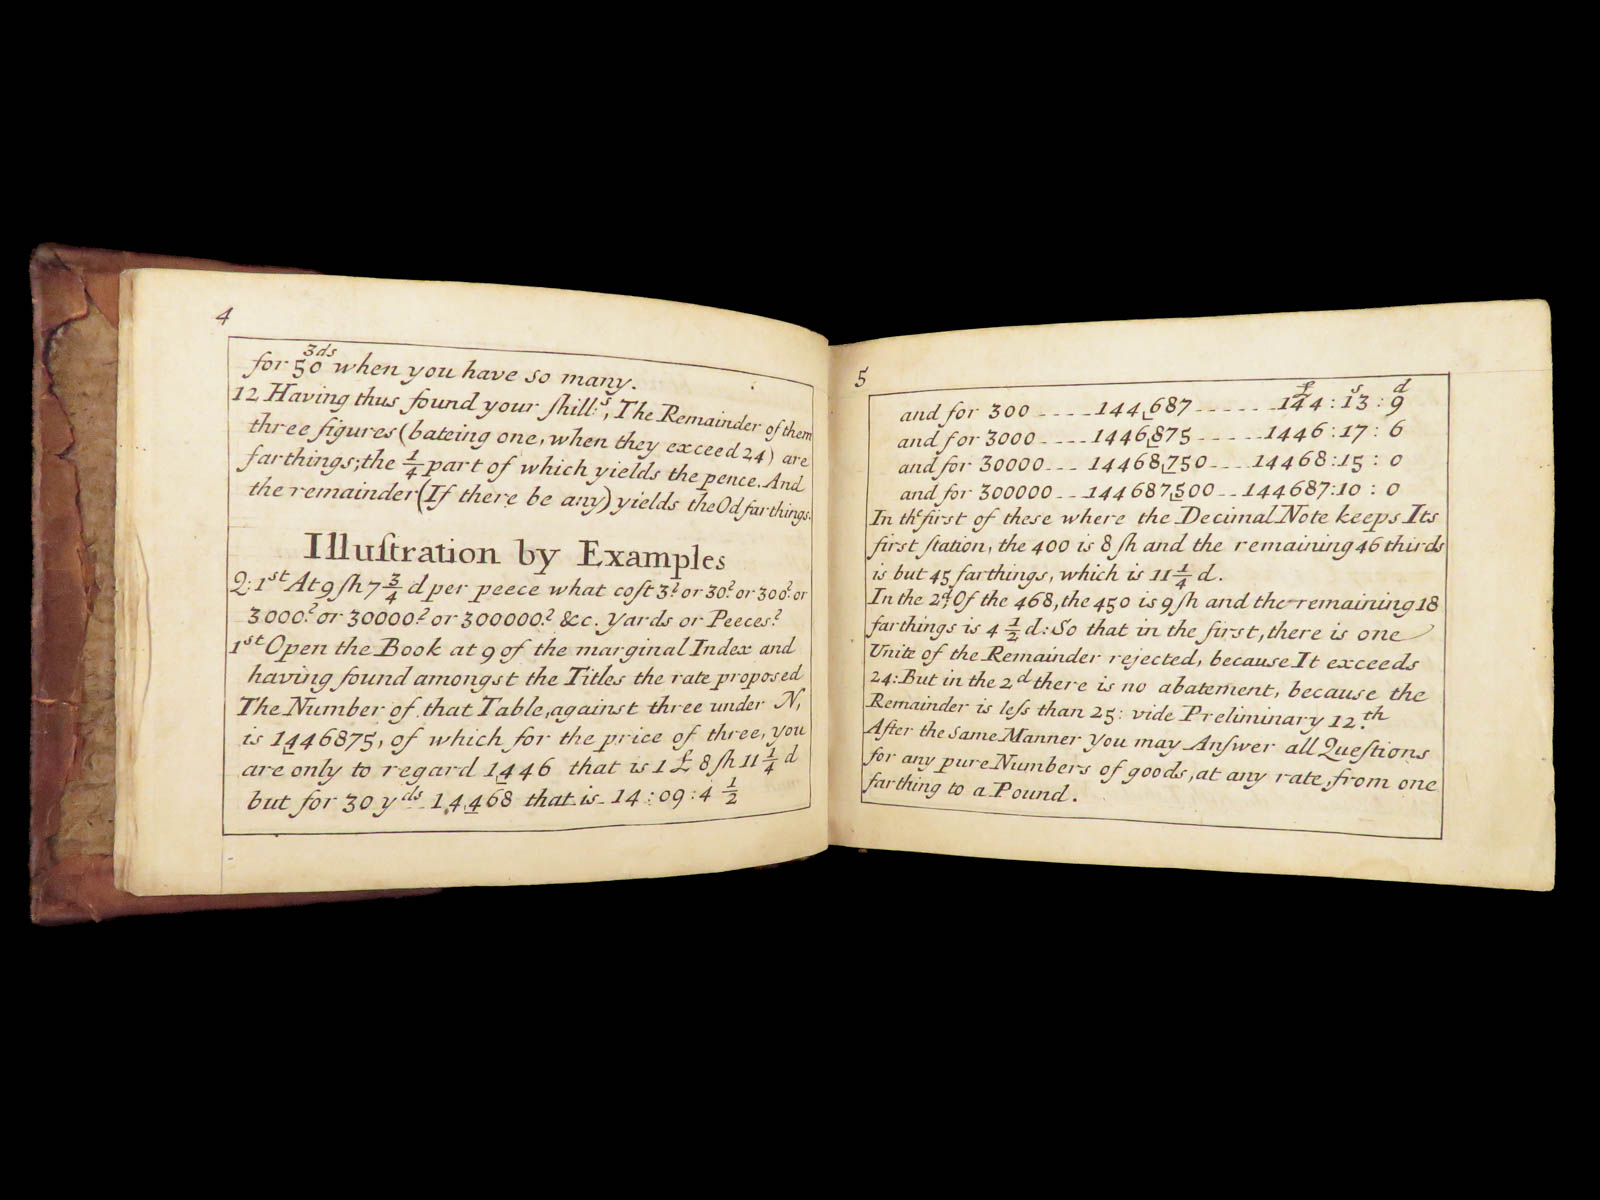 4
3ds
for 50 when you have so many.
12 Having thus found your ſhill:s, The Remainder of them
three figures (bateing one, when they exceed 24) are
farthings; the 1/4 part of which yields the pence. And
the remainder (If there be any) yields the Od farthings.
Illuſtration by Examples
Q: 1st At 9 ſh 7 3/4 d per peece what coſt 3? or 30? or 300? or
3000? or 30000? or 300000? &c. Yards or Peeces?
1st Open the Book at 9 of the marginal Index and
having found amongst the Titles the rate proposed
The Number of that Table, against three under N,
is 1446875, of which for the price of three, you
are only to regard 1446 that is 1 £ 8 ſh 11 1/4 d
but for 30 yds 14468 that is 14 : 09 : 4 1/2
5
£ s d
and for 300 .... 144,687 ...... 144 : 13 : 9
and for 3000 .... 1446,875 ..... 1446 : 17 : 6
and for 30000 ... 14468,750 .... 14468 : 15 : 0
and for 300000 .. 144687,500 .. 144687 : 10 : 0
In the first of these where the Decimal Note keeps Its
first ſtation, the 400 is 8 ſh and the remaining 46 thirds
is but 45 farthings, which is 11 1/4 d.
In the 2d, Of the 468, the 450 is 9 ſh and the remaining 18
farthings is 4 1/2 d: So that in the first, there is one
Unite of the Remainder rejected, because It exceeds
24: But in the 2d there is no abatement, because the
Remainder is leſs than 25: vide Preliminary 12th.
After the Same Manner you may Anſwer all Queſtions
for any pure Numbers of goods, at any rate, from one
farthing to a Pound.